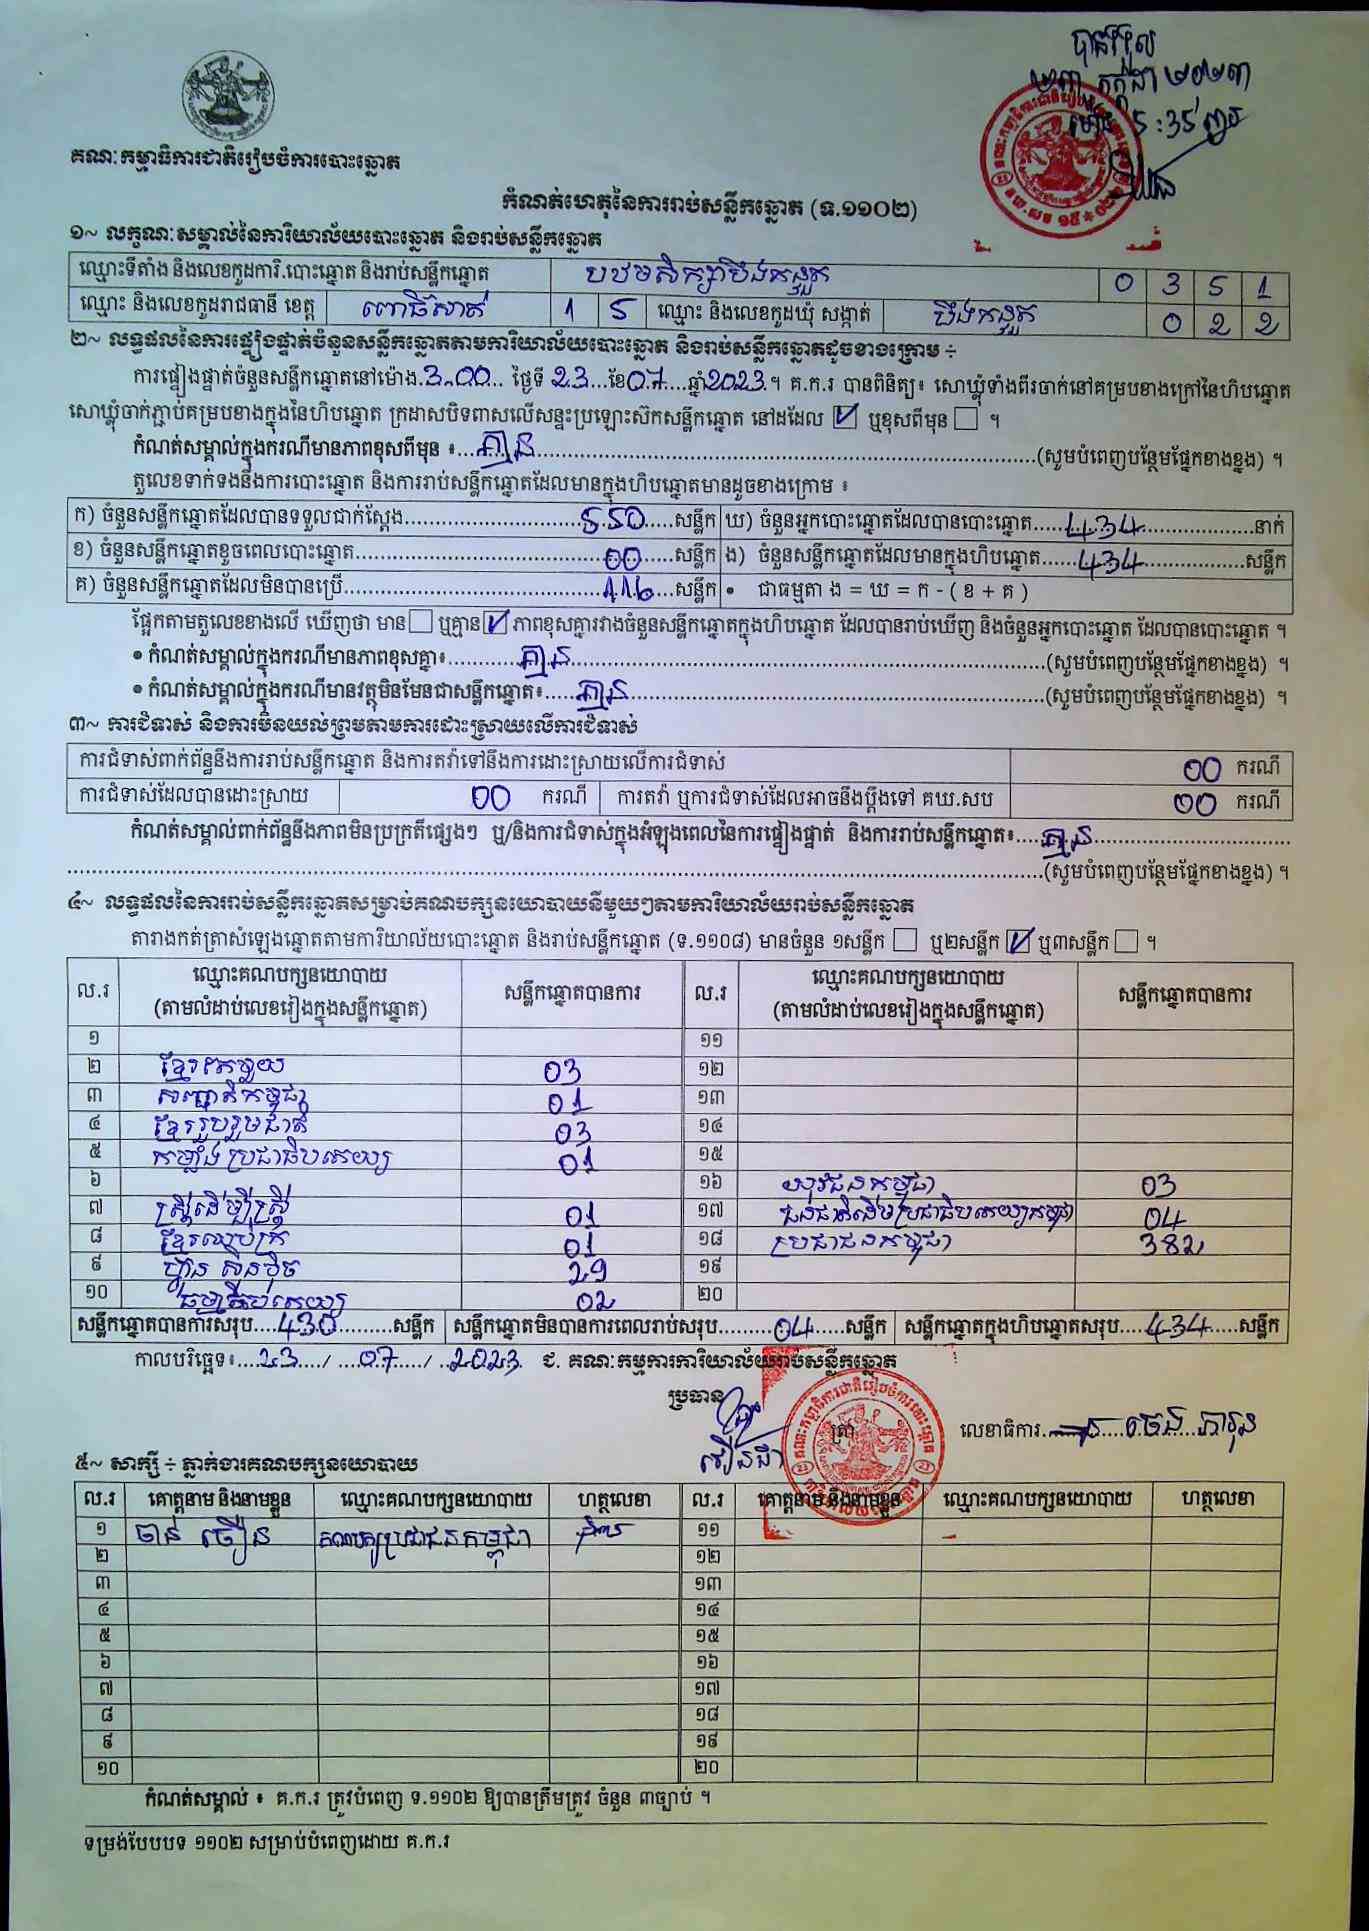 បានទទួល
២៣ កក្កដា ២០២៣
ម៉ោង 5:35 ល្ងាច
គណៈកម្មាធិការជាតិរៀបចំការបោះឆ្នោត
កំណត់ហេតុនៃការរាប់សន្លឹកឆ្នោត (ទ.១១០២)
១~ លក្ខណៈសម្គាល់នៃការិយាល័យបោះឆ្នោត និងរាប់សន្លឹកឆ្នោត
ឈ្មោះទីតាំង និងលេខកូដការិ.បោះឆ្នោត និងរាប់សន្លឹកឆ្នោត បឋមសិក្សាបឹងកន្ទួត 0 3 5 1
ឈ្មោះ និងលេខកូដរាជធានី ខេត្ត ពោធិ៍សាត់ 1 5 ឈ្មោះ និងលេខកូដឃុំ សង្កាត់ បឹងកន្ទួត 0 2 2
២~ លទ្ធផលនៃការផ្ទៀងផ្ទាត់ចំនួនសន្លឹកឆ្នោតតាមការិយាល័យបោះឆ្នោត និងរាប់សន្លឹកឆ្នោតដូចខាងក្រោម ÷
ការផ្ទៀងផ្ទាត់ចំនួនសន្លឹកឆ្នោតនៅម៉ោង 3:00 ថ្ងៃទី 23 ខែ 07 ឆ្នាំ 2023 ។ គ.ក.រ បានពិនិត្យ៖ សោឃ្លុំទាំងពីរចាក់នៅគម្របខាងក្រៅនៃហិបឆ្នោត
សោឃ្លុំចាក់ភ្ជាប់គម្របខាងក្នុងនៃហិបឆ្នោត ក្រដាសបិទពាសលើសន្ទះប្រឡោះស៊កសន្លឹកឆ្នោត នៅដដែល ☑ ឬខុសពីមុន ☐ ។
កំណត់សម្គាល់ក្នុងករណីមានភាពខុសពីមុន ៖ គ្មាន (សូមបំពេញបន្ថែមផ្នែកខាងខ្នង) ។
តួលេខទាក់ទងនឹងការបោះឆ្នោត និងការរាប់សន្លឹកឆ្នោតដែលមានក្នុងហិបឆ្នោតមានដូចខាងក្រោម ៖
ក) ចំនួនសន្លឹកឆ្នោតដែលបានទទួលជាក់ស្តែង 550 សន្លឹក ឃ) ចំនួនអ្នកបោះឆ្នោតដែលបានបោះឆ្នោត 434 នាក់
ខ) ចំនួនសន្លឹកឆ្នោតខូចពេលបោះឆ្នោត 00 សន្លឹក ង) ចំនួនសន្លឹកឆ្នោតដែលមានក្នុងហិបឆ្នោត 434 សន្លឹក
គ) ចំនួនសន្លឹកឆ្នោតដែលមិនបានប្រើ 116 សន្លឹក • ជាធម្មតា ង = ឃ = ក - ( ខ + គ )
ផ្អែកតាមតួលេខខាងលើ ឃើញថា មាន ☐ ឬគ្មាន ☑ ភាពខុសគ្នារវាងចំនួនសន្លឹកឆ្នោតក្នុងហិបឆ្នោត ដែលបានរាប់ឃើញ និងចំនួនអ្នកបោះឆ្នោត ដែលបានបោះឆ្នោត ។
• កំណត់សម្គាល់ក្នុងករណីមានភាពខុសគ្នា៖ គ្មាន (សូមបំពេញបន្ថែមផ្នែកខាងខ្នង) ។
• កំណត់សម្គាល់ក្នុងករណីមានវត្ថុមិនមែនជាសន្លឹកឆ្នោត៖ គ្មាន (សូមបំពេញបន្ថែមផ្នែកខាងខ្នង) ។
៣~ ការជំទាស់ និងការមិនយល់ព្រមតាមការដោះស្រាយលើការជំទាស់
ការជំទាស់ពាក់ព័ន្ធនឹងការរាប់សន្លឹកឆ្នោត និងការតវ៉ាទៅនឹងការដោះស្រាយលើការជំទាស់ 00 ករណី
ការជំទាស់ដែលបានដោះស្រាយ 00 ករណី ការតវ៉ា ឬការជំទាស់ដែលអាចនឹងប្តឹងទៅ គឃ.សប 00 ករណី
កំណត់សម្គាល់ពាក់ព័ន្ធនឹងភាពមិនប្រក្រតីផ្សេងៗ ឬ/និងការជំទាស់ក្នុងអំឡុងពេលនៃការផ្ទៀងផ្ទាត់ និងការរាប់សន្លឹកឆ្នោត៖ គ្មាន
(សូមបំពេញបន្ថែមផ្នែកខាងខ្នង) ។
៤~ លទ្ធផលនៃការរាប់សន្លឹកឆ្នោតសម្រាប់គណបក្សនយោបាយនីមួយៗតាមការិយាល័យរាប់សន្លឹកឆ្នោត
តារាងកត់ត្រាសំឡេងឆ្នោតតាមការិយាល័យបោះឆ្នោត និងរាប់សន្លឹកឆ្នោត (ទ.១១០៨) មានចំនួន ១សន្លឹក ☐ ឬ២សន្លឹក ☑ ឬ៣សន្លឹក ☐ ។
ល.រ ឈ្មោះគណបក្សនយោបាយ (តាមលំដាប់លេខរៀងក្នុងសន្លឹកឆ្នោត) សន្លឹកឆ្នោតបានការ ល.រ ឈ្មោះគណបក្សនយោបាយ (តាមលំដាប់លេខរៀងក្នុងសន្លឹកឆ្នោត) សន្លឹកឆ្នោតបានការ
១ ១១
២ ខ្មែរតែមួយ 03 ១២
៣ សញ្ជាតិកម្ពុជា 01 ១៣
៤ ខ្មែររួបរួមជាតិ 03 ១៤
៥ កម្លាំងប្រជាធិបតេយ្យ 01 ១៥
៦ ១៦ យុវជនកម្ពុជា 03
៧ ស្ត្រីដើម្បីស្ត្រី 01 ១៧ ជនជាតិដើមប្រជាធិបតេយ្យកម្ពុជា 04
៨ ខ្មែរឈប់ក្រ 01 ១៨ ប្រជាជនកម្ពុជា 382
៩ ហ្វ៊ុនស៊ិនប៉ិច 29 ១៩
១០ ធម្មាធិបតេយ្យ 02 ២០
សន្លឹកឆ្នោតបានការសរុប 430 សន្លឹក សន្លឹកឆ្នោតមិនបានការពេលរាប់សរុប 04 សន្លឹក សន្លឹកឆ្នោតក្នុងហិបឆ្នោតសរុប 434 សន្លឹក
កាលបរិច្ឆេទ៖ 23 / 07 / 2023 ជ. គណៈកម្មការការិយាល័យរាប់សន្លឹកឆ្នោត
ប្រធាន
ត្រា
លេខាធិការ
៥~ សាក្សី ÷ ភ្នាក់ងារគណបក្សនយោបាយ
ល.រ គោត្តនាម និងនាមខ្លួន ឈ្មោះគណបក្សនយោបាយ ហត្ថលេខា ល.រ គោត្តនាម និងនាមខ្លួន ឈ្មោះគណបក្សនយោបាយ ហត្ថលេខា
១ ចាន់ ធឿន គណបក្សប្រជាជនកម្ពុជា ១១
២ ១២
៣ ១៣
៤ ១៤
៥ ១៥
៦ ១៦
៧ ១៧
៨ ១៨
៩ ១៩
១០ ២០
កំណត់សម្គាល់ ៖ គ.ក.រ ត្រូវបំពេញ ទ.១១០២ ឱ្យបានត្រឹមត្រូវ ចំនួន ៣ច្បាប់ ។
ទម្រង់បែបបទ ១១០២ សម្រាប់បំពេញដោយ គ.ក.រ